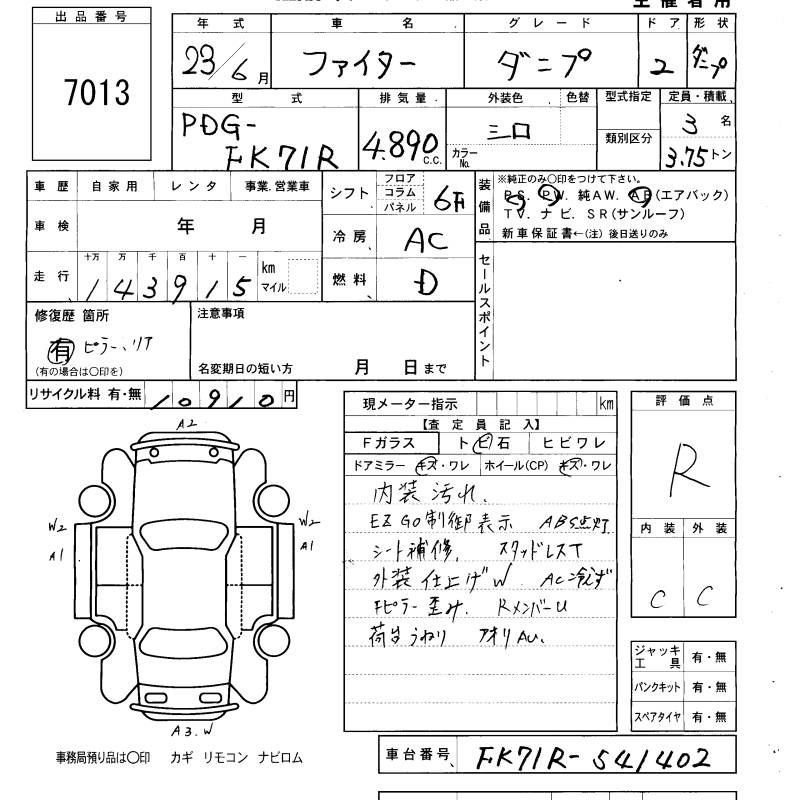 出品番号
7013
年式 車名 グレード ドア 形状
23/6月 ファイター ダンプ 2 ダンプ
型式 排気量 外装色 色替 型式指定 定員・積載
PDG-
FK71R
4.890 C.C.
カラーNo.
類別区分
3名
3.75トン
車歴 自家用 レンタ 事業.営業車
シフト フロア コラム パネル 6F
装備品
※純正のみ〇印をつけて下さい。
P S. P W. 純A W. A B (エアバック)
T V. ナ ビ. S R (サンルーフ)
新車保証書←(注) 後日送りのみ
車検 年 月
冷房 AC
走行 十万 万 千 百 十 一 km マイル
143915
燃料 D
セールスポイント
修復歴 箇所
有 ピラー、リア
(有の場合は〇印を)
注意事項
名変期日の短い方 月 日まで
リサイクル料 有・無 10910円
現メーター指示 km
【査定員記入】
Fガラス トビ石 ヒビワレ
ドアミラー キズ・ワレ ホイール(CP) キズ・ワレ
内装汚れ.
EZGO制御表示 ABS点灯
シート補修. スタッドレスT
外装仕上げW AC冷えず
Fピラー歪み. RメンバーU
荷台うねり アオリAU.
評価点
R
内装 外装
C C
A2
W2
A1
W2
A1
A3.W
ジャッキ工具 有・無
パンクキット 有・無
スペアタイヤ 有・無
事務局預り品は〇印 カギ リモコン ナビロム
車台番号 FK71R-541402